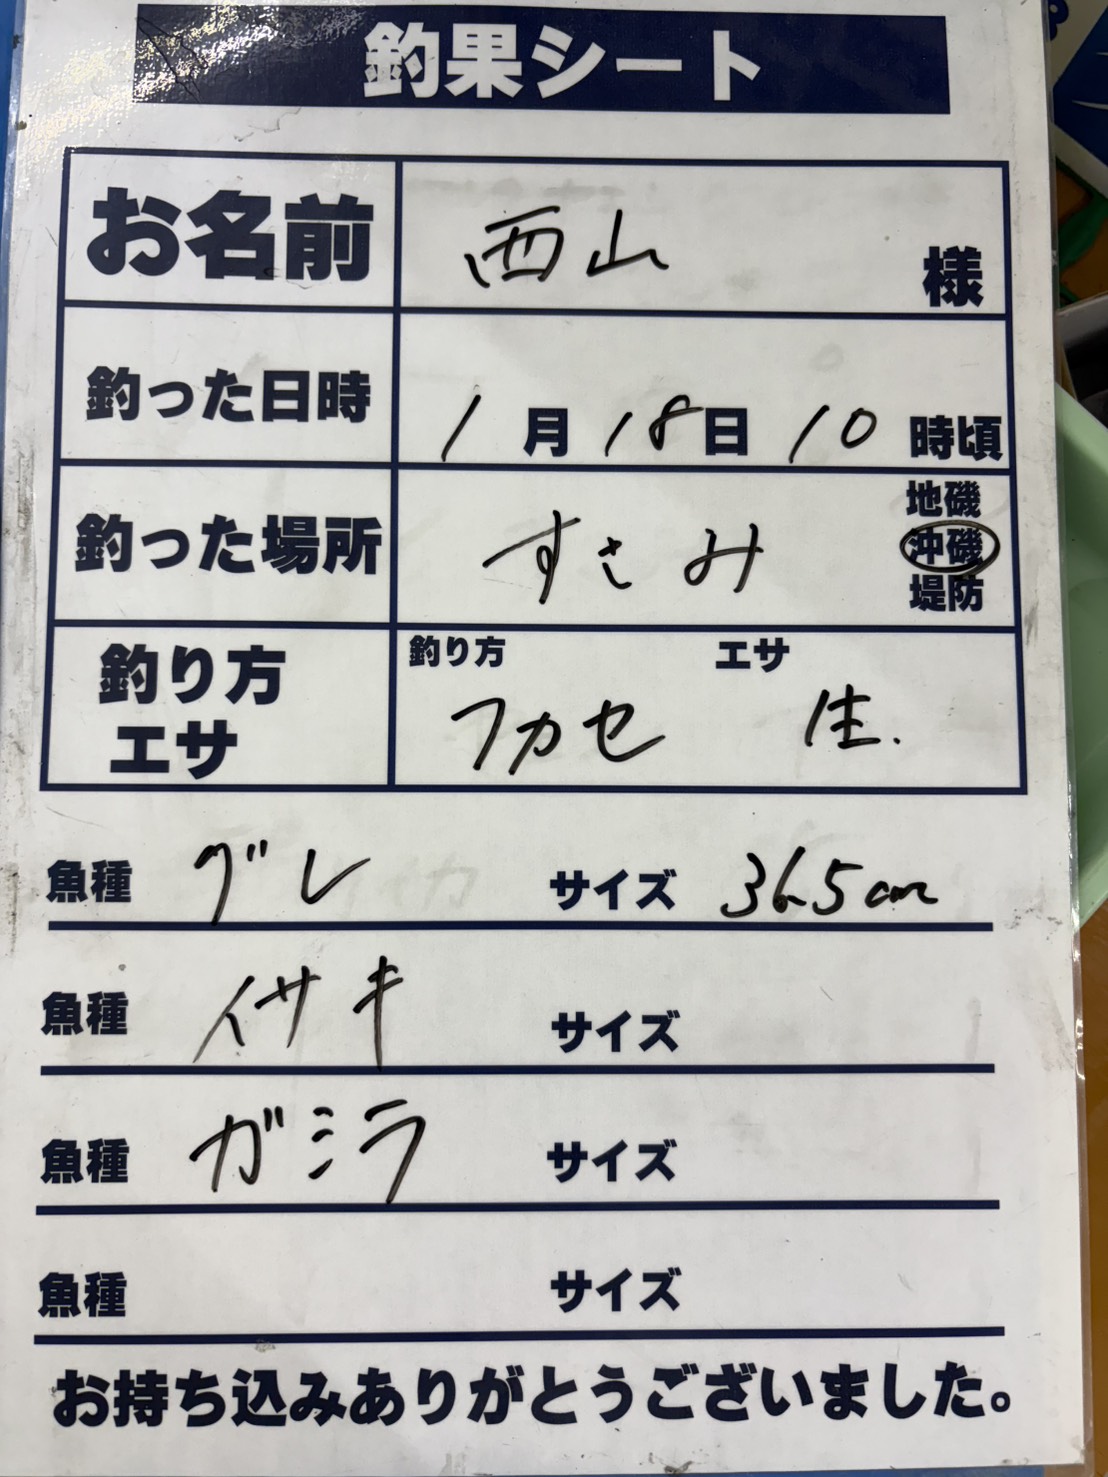 釣果シート
お名前 西山 様
釣った日時 1月18日10時頃
釣った場所 すさみ 地磯
沖磯
堤防
釣り方 エサ
釣り方 フカセ エサ 生.
魚種 グレ サイズ 36.5cm
魚種 イサキ サイズ
魚種 ガシラ サイズ
魚種 サイズ
お持ち込みありがとうございました。